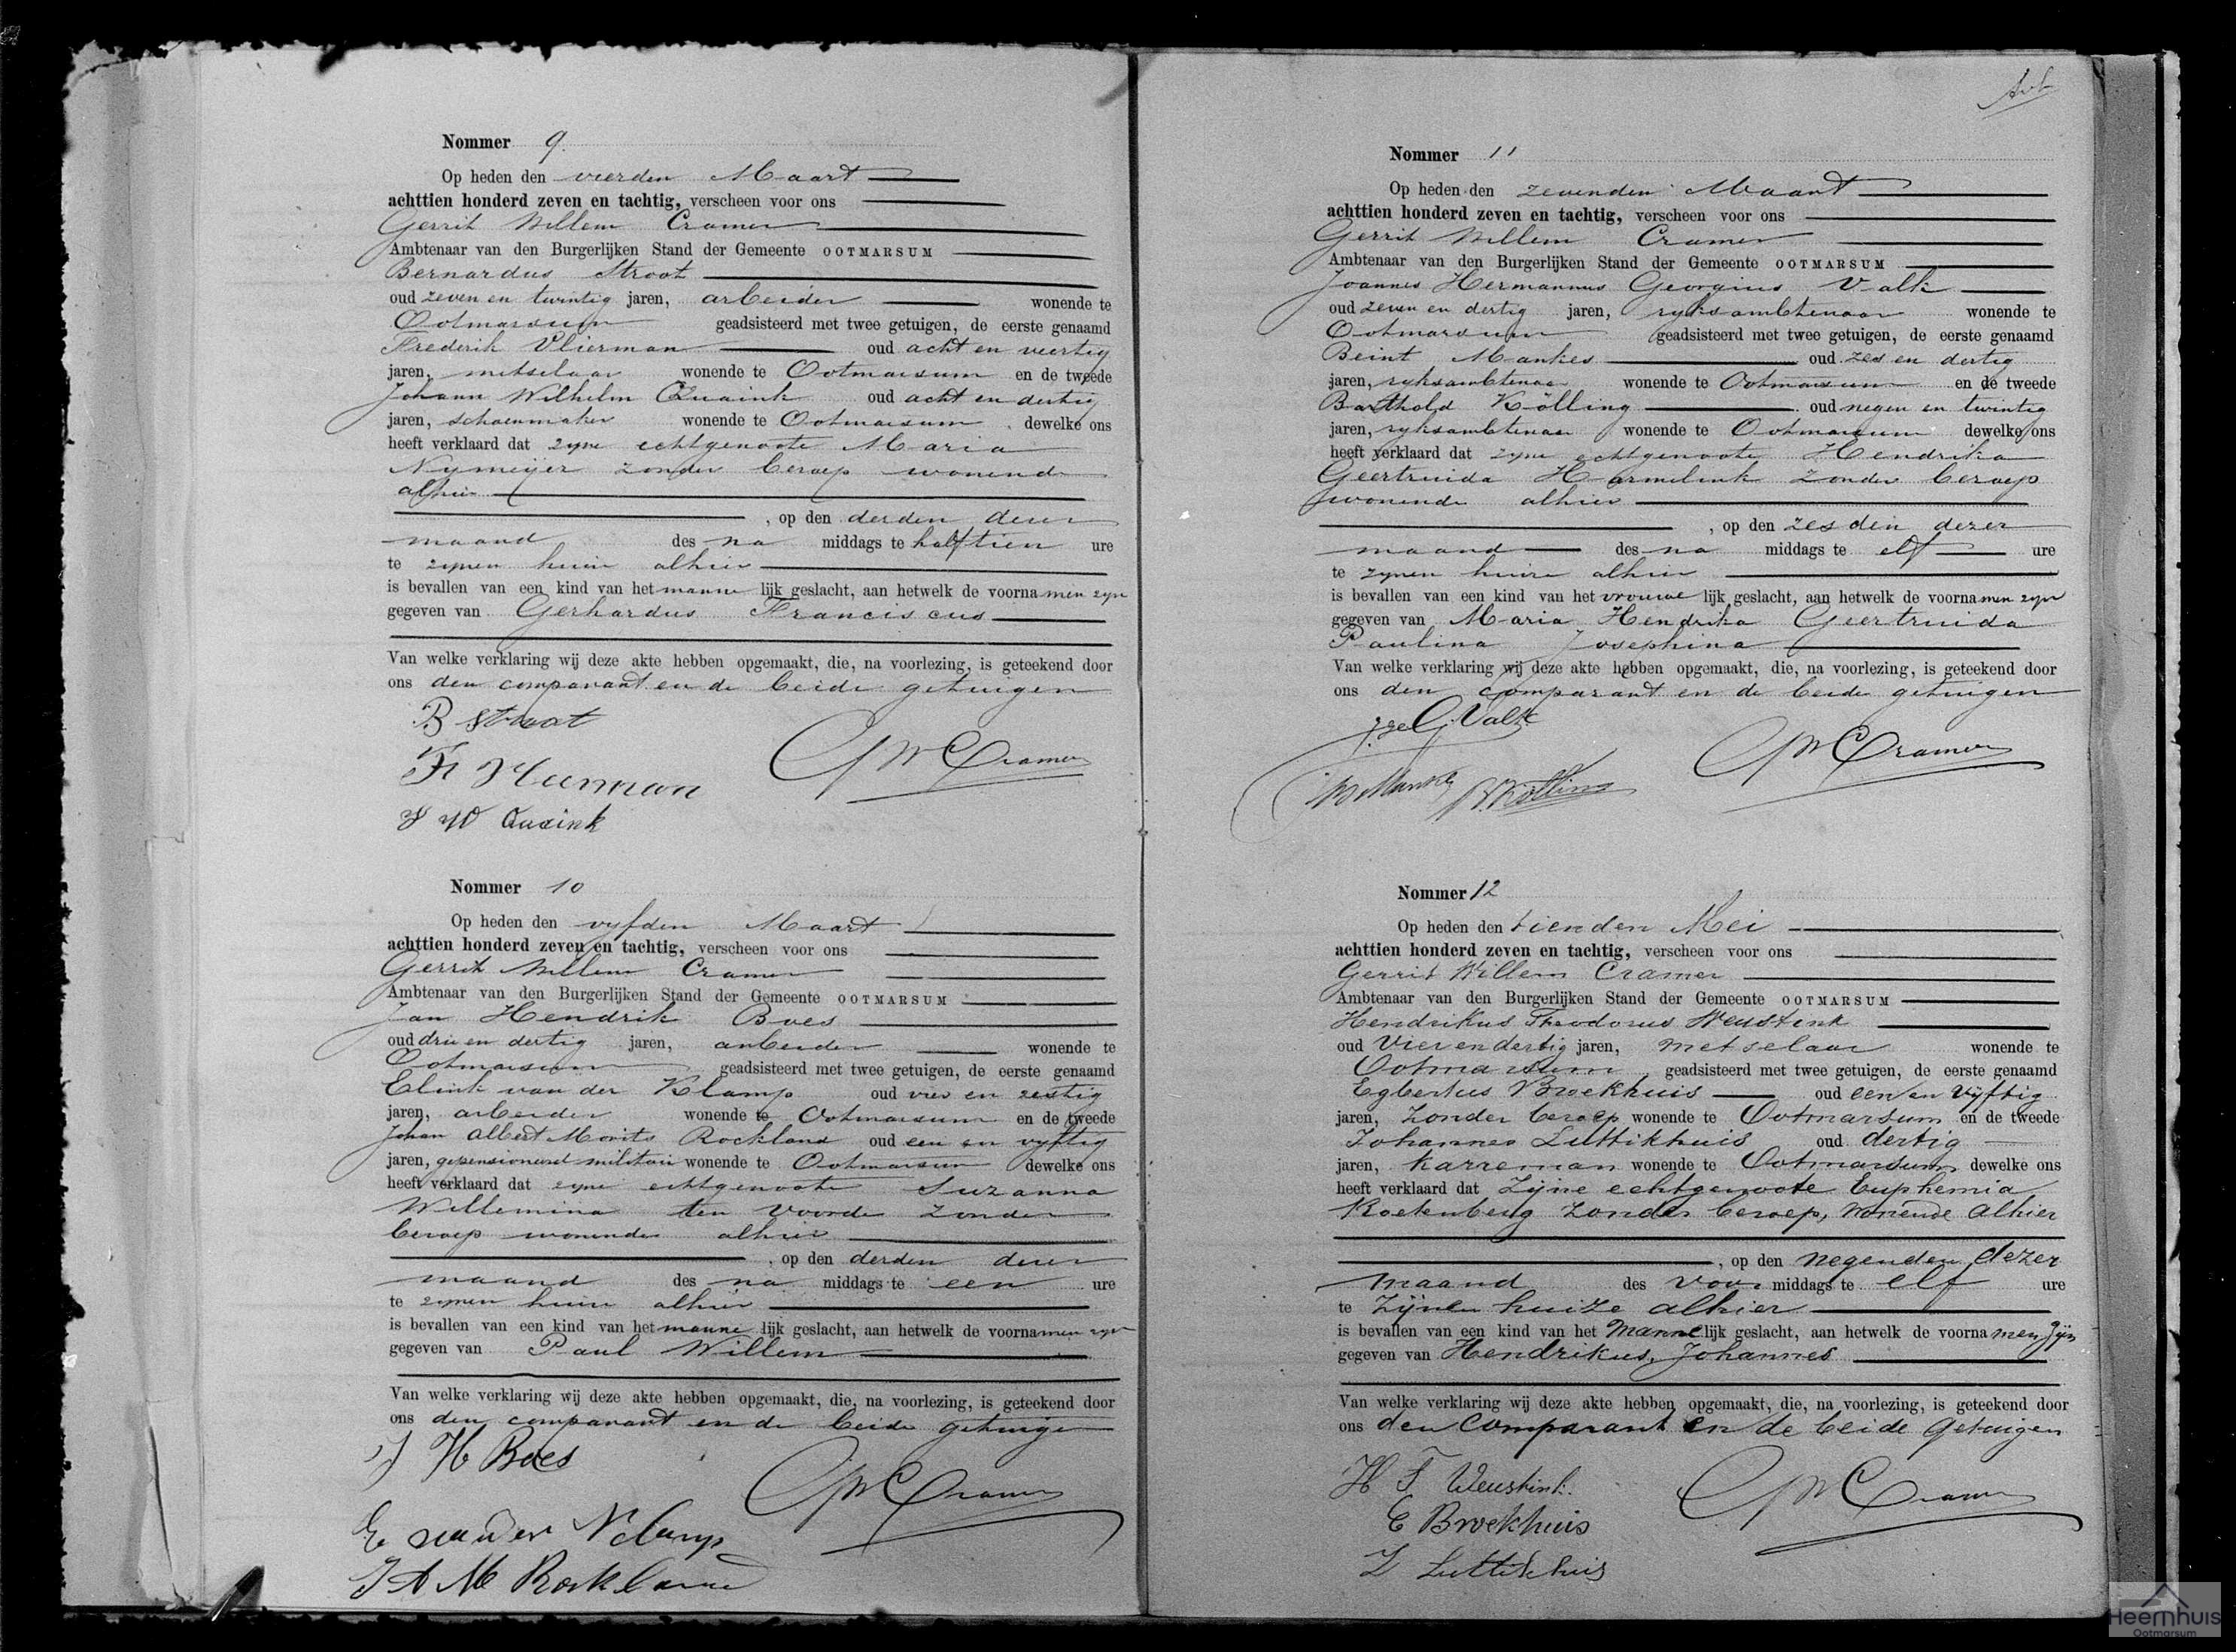 Nommer 9.
Op heden den vierden Maart
achttien honderd zeven en tachtig, verscheen voor ons
Gerrit Willem Cramer
Ambtenaar van den Burgerlijken Stand der Gemeente OOTMARSUM
Bernardus Stroot
oud zeven en twintig jaren, arbeider wonende te
Ootmarsum geadsisteerd met twee getuigen, de eerste genaamd
Frederik Vlierman oud acht en veertig
jaren, metselaar wonende te Ootmarsum en de tweede
Johann Wilhelm Quaink oud acht en dertig
jaren, schoenmaker wonende te Ootmarsum dewelke ons
heeft verklaard dat zyne echtgenoote Maria
Nymeijer zonder beroep wonende
alhier
, op den derden dezer
maand des na middags te half tien ure
te zynen huize alhier
is bevallen van een kind van het manne lijk geslacht, aan hetwelk de voorna men zyn
gegeven van Gerhardus Franciscus
Van welke verklaring wij deze akte hebben opgemaakt, die, na voorlezing, is geteekend door
ons den comparant en de beide getuigen
B Stroot
GW Cramer
F Vlierman
J W Quaink
Nommer 10
Op heden den vyfden Maart
achttien honderd zeven en tachtig, verscheen voor ons
Gerrit Willem Cramer
Ambtenaar van den Burgerlijken Stand der Gemeente OOTMARSUM
Jan Hendrik Boes
oud drie en dertig jaren, arbeider wonende te
Ootmarsum geadsisteerd met twee getuigen, de eerste genaamd
Elink van der Klamp oud vier en zestig
jaren, arbeider wonende te Ootmarsum en de tweede
Johan Albert Morits Rockland oud een en vyftig
jaren, gepensioneerd militair wonende te Ootmarsum dewelke ons
heeft verklaard dat zyne echtgenoote Suzanna
Willemina ten Voorde zonder
beroep wonende alhier
, op den derden dezer
maand des na middags te een ure
te zynen huize alhier
is bevallen van een kind van het manne lijk geslacht, aan hetwelk de voorna men zyn
gegeven van Paul Willem
Van welke verklaring wij deze akte hebben opgemaakt, die, na voorlezing, is geteekend door
ons den comparant en de beide getuige
J H Boes
GW Cramer
E van der Klamp
J A M Rockland
Nommer 11
Op heden den zevenden Maart
achttien honderd zeven en tachtig, verscheen voor ons
Gerrit Willem Cramer
Ambtenaar van den Burgerlijken Stand der Gemeente OOTMARSUM
Joannes Hermannus Georgius Valk
oud zeven en dertig jaren, ryksambtenaar wonende te
Ootmarsum geadsisteerd met twee getuigen, de eerste genaamd
Beint Mankes oud zes en dertig
jaren, ryksambtenaar wonende te Ootmarsum en de tweede
Barthold Kölling oud negen en twintig
jaren, ryksambtenaar wonende te Ootmarsum dewelke ons
heeft verklaard dat zyne echtgenoote Hendrika
Geertruida Harmelink zonder beroep
wonende alhier
, op den zesden dezer
maand des na middags te elf ure
te zynen huize alhier
is bevallen van een kind van het vrouwe lijk geslacht, aan hetwelk de voorna men zyn
gegeven van Maria Hendrika Geertruida
Paulina Josephina
Van welke verklaring wij deze akte hebben opgemaakt, die, na voorlezing, is geteekend door
ons den comparant en de beide getuigen
J.H.G. Valk
GW Cramer
B Mankes B. Kölling
Nommer 12
Op heden den tienden Mei
achttien honderd zeven en tachtig, verscheen voor ons
Gerrit Willem Cramer
Ambtenaar van den Burgerlijken Stand der Gemeente OOTMARSUM
Hendrikus Theodorus Weustink
oud Vier en dertig jaren, metselaar wonende te
Ootmarsum geadsisteerd met twee getuigen, de eerste genaamd
Egbertus Broekhuis oud een en vijftig
jaren, zonder beroep wonende te Ootmarsum en de tweede
Johannes Luttikhuis oud dertig
jaren, karreman wonende te Ootmarsum dewelke ons
heeft verklaard dat Zijne echtgenoote Euphemia
Koetenberg zonder beroep, wonende alhier
, op den negenden dezer
maand des voor middags te elf ure
te Zijnen huize alhier
is bevallen van een kind van het manne lijk geslacht, aan hetwelk de voorna men zijn
gegeven van Hendrikus, Johannes
Van welke verklaring wij deze akte hebben opgemaakt, die, na voorlezing, is geteekend door
ons den comparant en de beide getuigen
H T Weustink.
GW Cramer
E Broekhuis
J Luttikhuis
Heemhuis
Ootmarsum